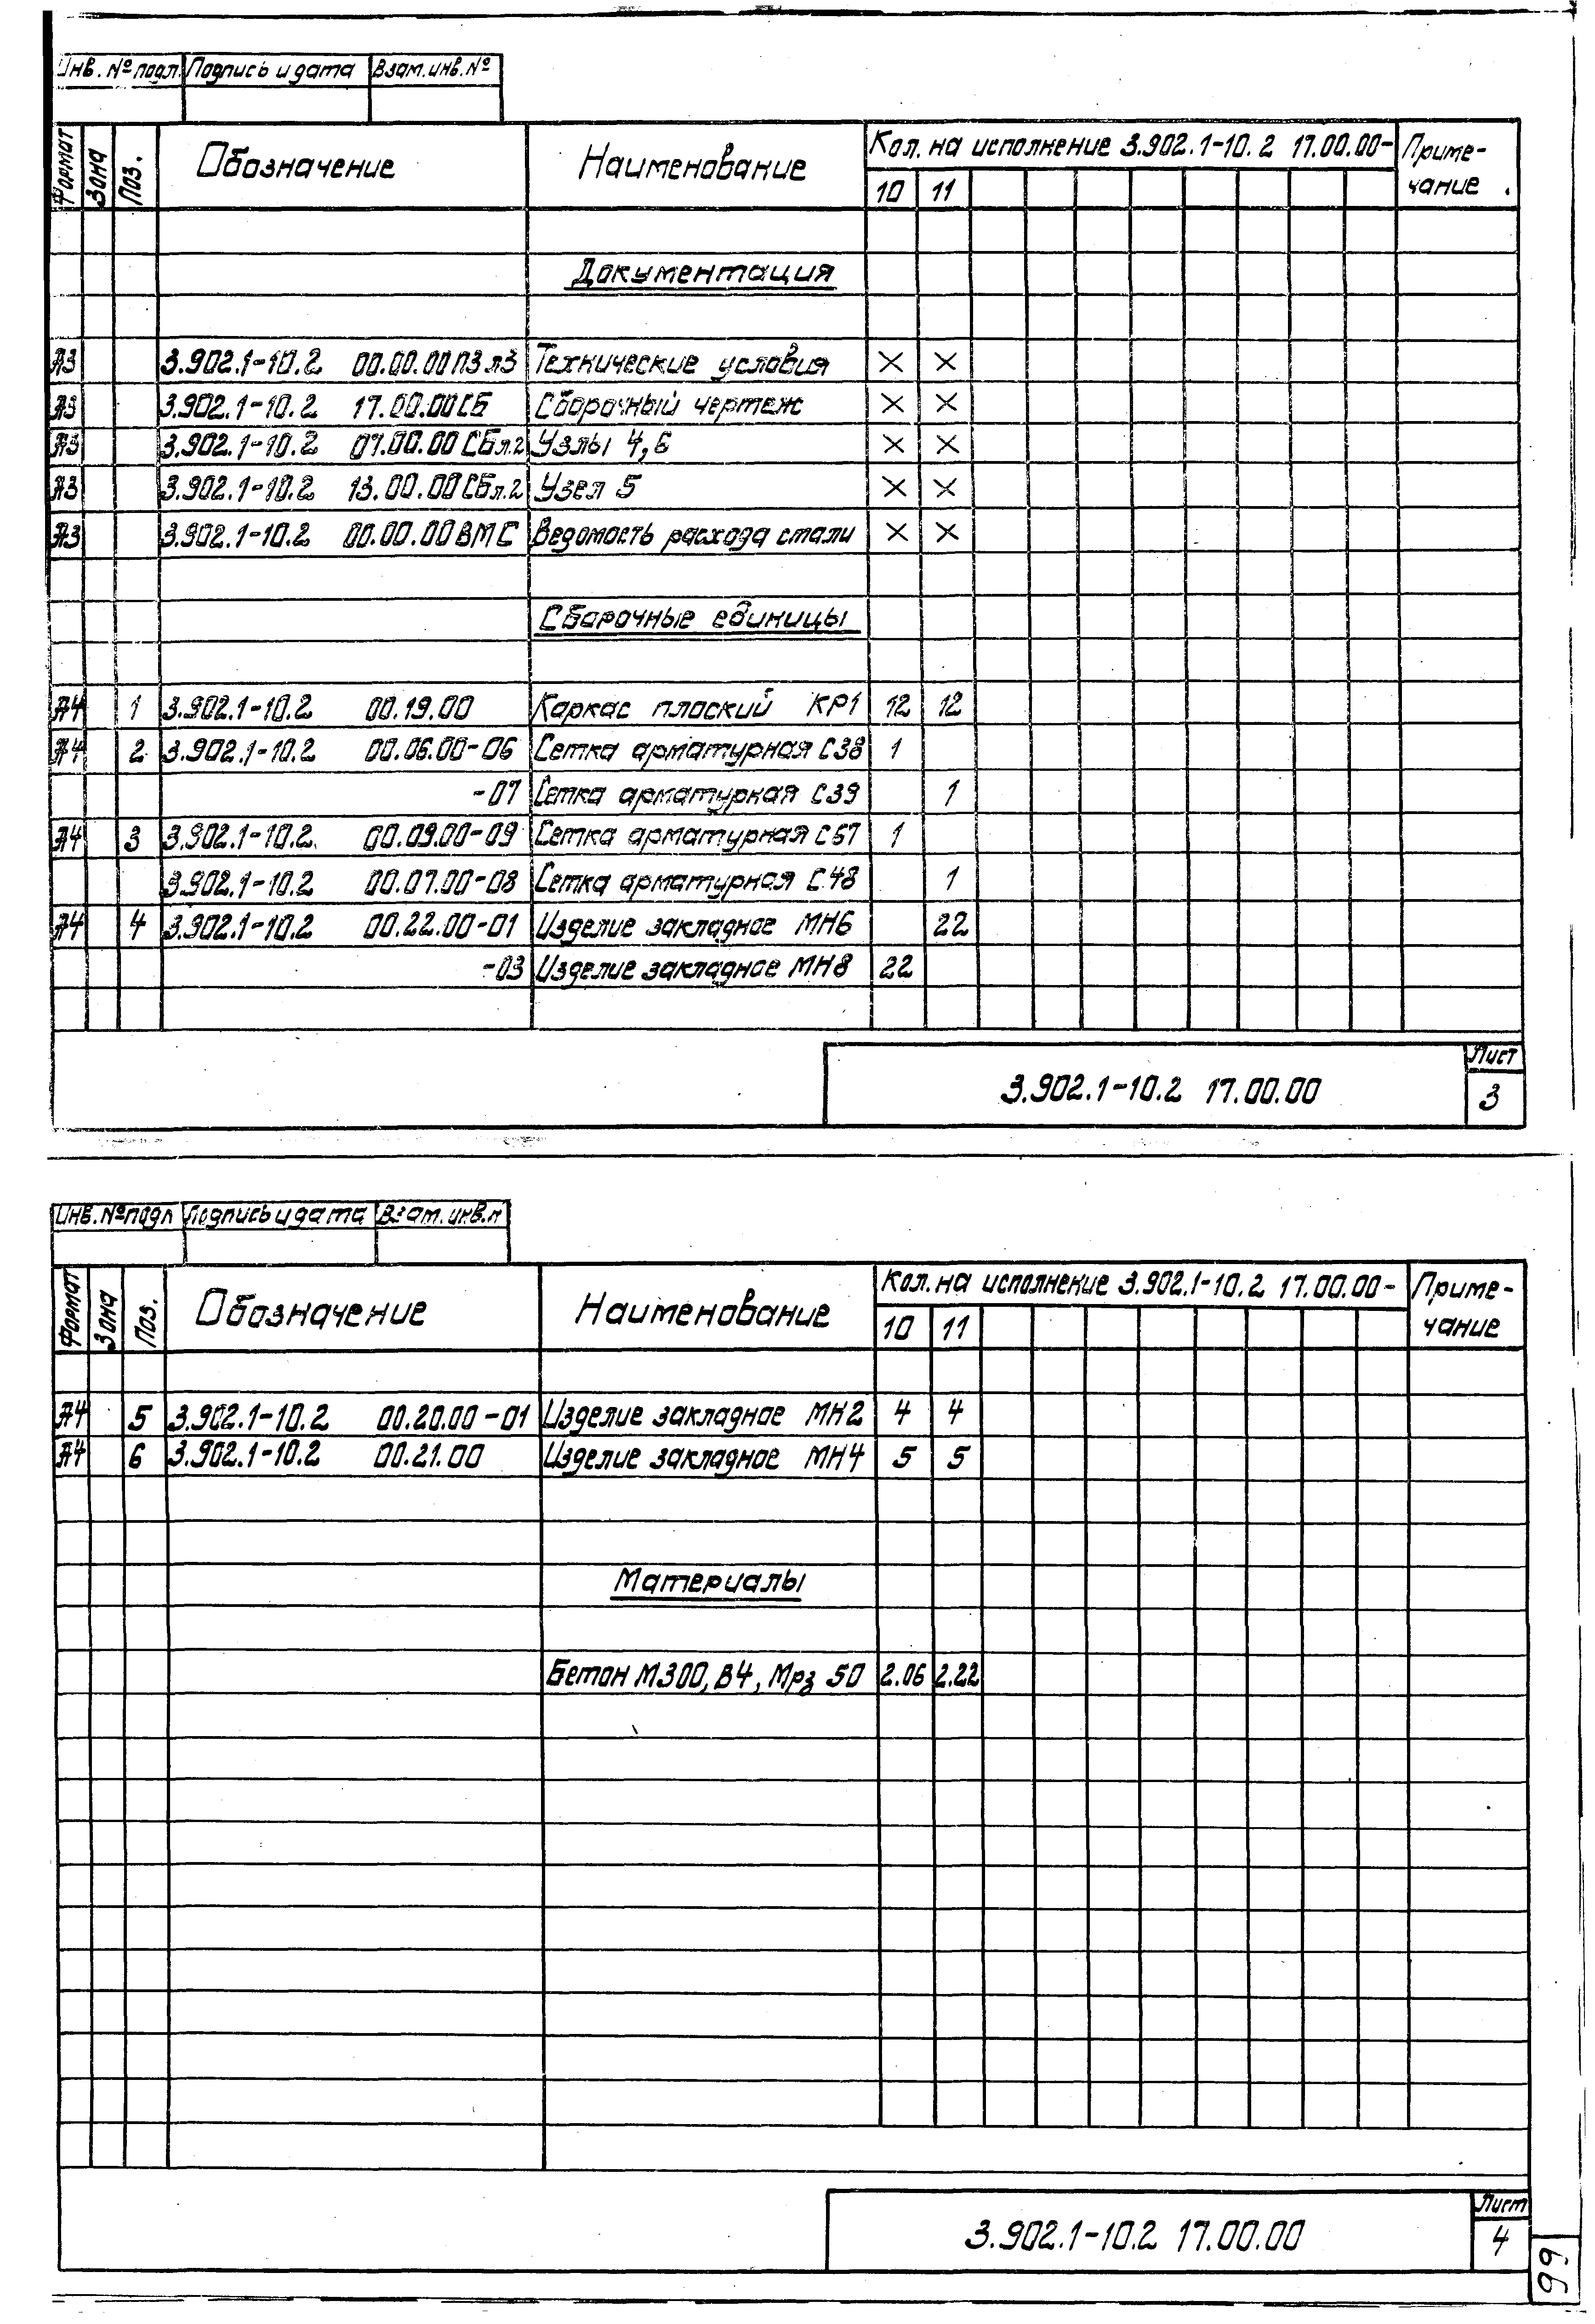 Инв. № подл. Подпись и дата Взам. инв. №
Формат Зона Поз. Обозначение Наименование Кол. на исполнение 3.902.1-10.2 17.00.00- Приме-
10 11 чание
Документация
А3 3.902.1-10.2 00.00.00ПЗ л3 Технические условия × ×
А3 3.902.1-10.2 17.00.00СБ Сборочный чертеж × ×
А3 3.902.1-10.2 07.00.00 СБ л.2 Узлы 4,6 × ×
А3 3.902.1-10.2 13.00.00СБ л.2 Узел 5 × ×
А3 3.902.1-10.2 00.00.00ВМС Ведомость расхода стали × ×
Сборочные единицы
А4 1 3.902.1-10.2 00.19.00 Каркас плоский КР1 12 12
А4 2 3.902.1-10.2 00.06.00-06 Сетка арматурная С38 1
-07 Сетка арматурная С39 1
А4 3 3.902.1-10.2 00.09.00-09 Сетка арматурная С57 1
3.902.1-10.2 00.07.00-08 Сетка арматурная С48 1
А4 4 3.902.1-10.2 00.22.00-01 Изделие закладное МН6 22
-03 Изделие закладное МН8 22
Лист
3.902.1-10.2 17.00.00 3
Инв. № подл Подпись и дата Взам. инв. №
Формат Зона Поз. Обозначение Наименование Кол. на исполнение 3.902.1-10.2 17.00.00- Приме-
10 11 чание
А4 5 3.902.1-10.2 00.20.00-01 Изделие закладное МН2 4 4
А4 6 3.902.1-10.2 00.21.00 Изделие закладное МН4 5 5
Материалы
Бетон М300, В4, Мрз 50 2.06 2.22
Лист
3.902.1-10.2 17.00.00 4
99